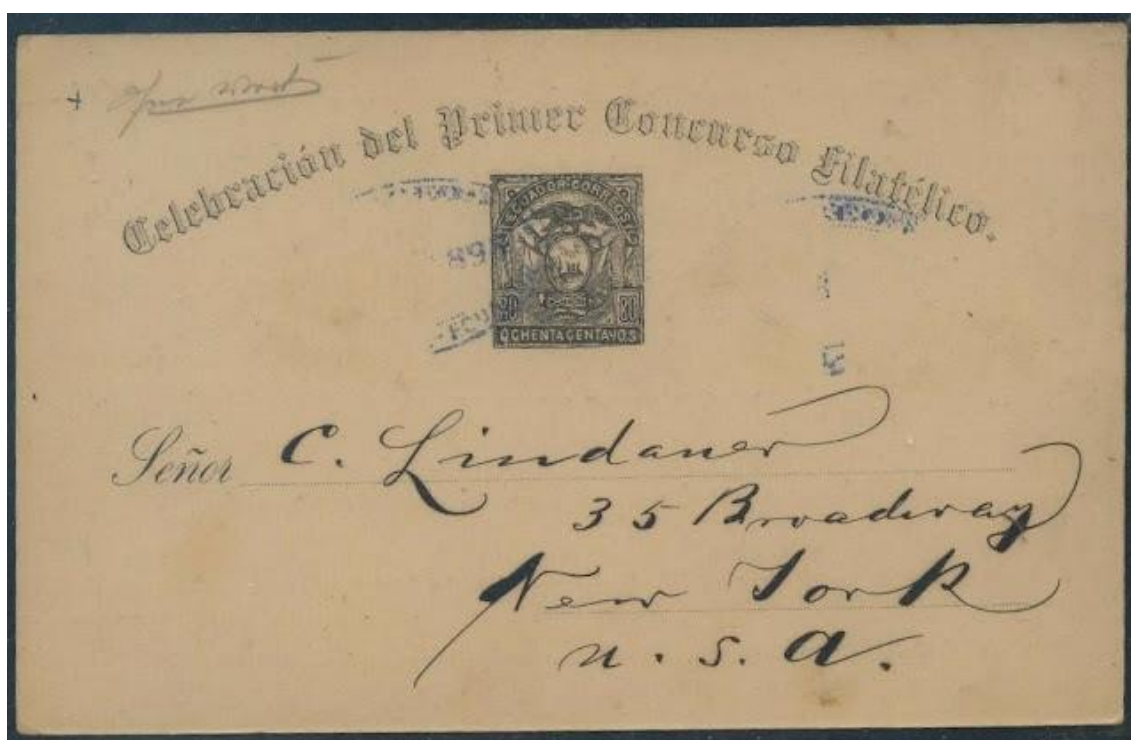 Celebración del Primer Concurso Filatélico.
ECUADOR·CORREOS
80 80
OCHENTA CENTAVOS
Señor C. Lindauer
35 Broadway
New York
U. S. A.